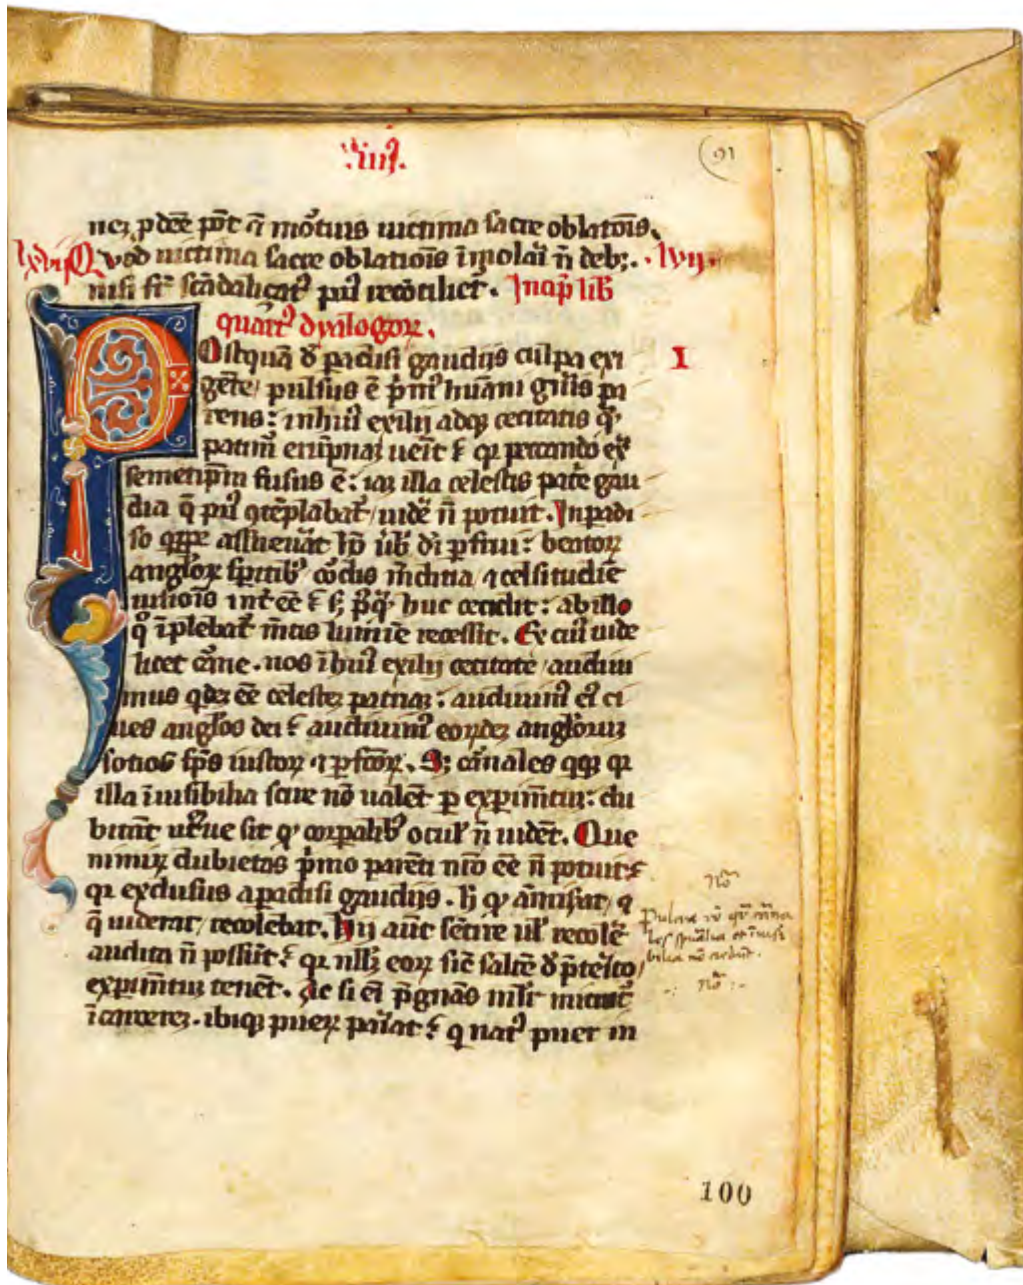 .iiij.
91
nez p dēē pōt ā moꝛtuis uictima sacre oblatōis.
lxviij Qvod uictima sacre oblatiois īmolaꝛi n̄ deb;. lvij.
nisi fꝛ̄ scādalizatꝰ pꝛiꝰ recōciliet. Incip̄ lib
quartꝰ dyalogoꝝ.
Postquā d̓ padisi gaudijs culpa exi
I
gēte pulsus ē p̓mꝰ huāni gn̄is pa
rens: in huiꝰ exilij adqꝫ cecitatis qꝫ
patimꝰ erūpnaꝫ uēit quia peccando ex̓
semetip̄m fusus ē: iaꝫ illa celestis pat̓e gau
dia q̄ pꝛiꝰ ꝯtēplabat᷑ uidē n̄ potuit. In padi
so qͥppe assueuāt hō ūb̓ di pfrui: beatoꝝ
angl̓oꝝ sp̄ntib̓ coꝛdis mūditia ⁊ celsitudīe
uisiōis int̓ ēē s; p̓qꝫ huc cecidit: ab illo
q̓ īplebat᷑ mētis lumīe recessit. Ex cuiꝰ uide
licet caꝛne. nos ī huiꝰ exilij cecitate audiui
mus qdeꝫ ēē celesteꝫ patriaꝫ: audiuimꝰ eiꝰ ci
ues angl̓os dei audiuimꝰ eoꝛdeꝫ angl̓oruꝫ
socios sp̄s iustoꝝ ⁊ pfctōꝝ. S; caꝛnales qꝫqꝫ qꝛ
illa īuisibilia scire nō ualēt p expim̄tuꝫ: du
bitant ut᷑ne sit qꝫ coꝛpalib̓ ocul᷑ n̄ uidēt. Que
nimiꝝ dubietas p̓mo parēti nr̄o ēē n̄ potuit
qꝛ exclusus a padisi gaudijs. h̓ qꝫ āmisat ⁊
q̄ uiderat recolebat. Hij aūt sētire ul᷑ recolē
audita n̄ possūt qꝛ nll̓ꝫ eoꝝ sic̄ saltē d̓ p̄te̓ito
expim̄tuꝫ tenēt. Ac si eī p̄gnās ml̓r mittat᷑
ī carcereꝫ. ibiqꝫ pueꝝ paꝛiat q natꝰ puer in
nō
biliа nō credūt.
nō
100